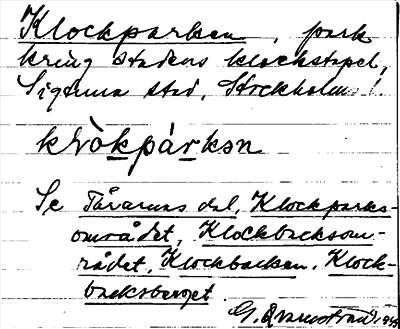 Klockparken, park
kring stadens klockstapel,
Sigtuna stad, Stockholms l.
klòkpárkən
Se Tåvarnas dal, Klockparks-
området, Klockbacksom-
rådet, Klockbacken, Klock-
backsberget
G.